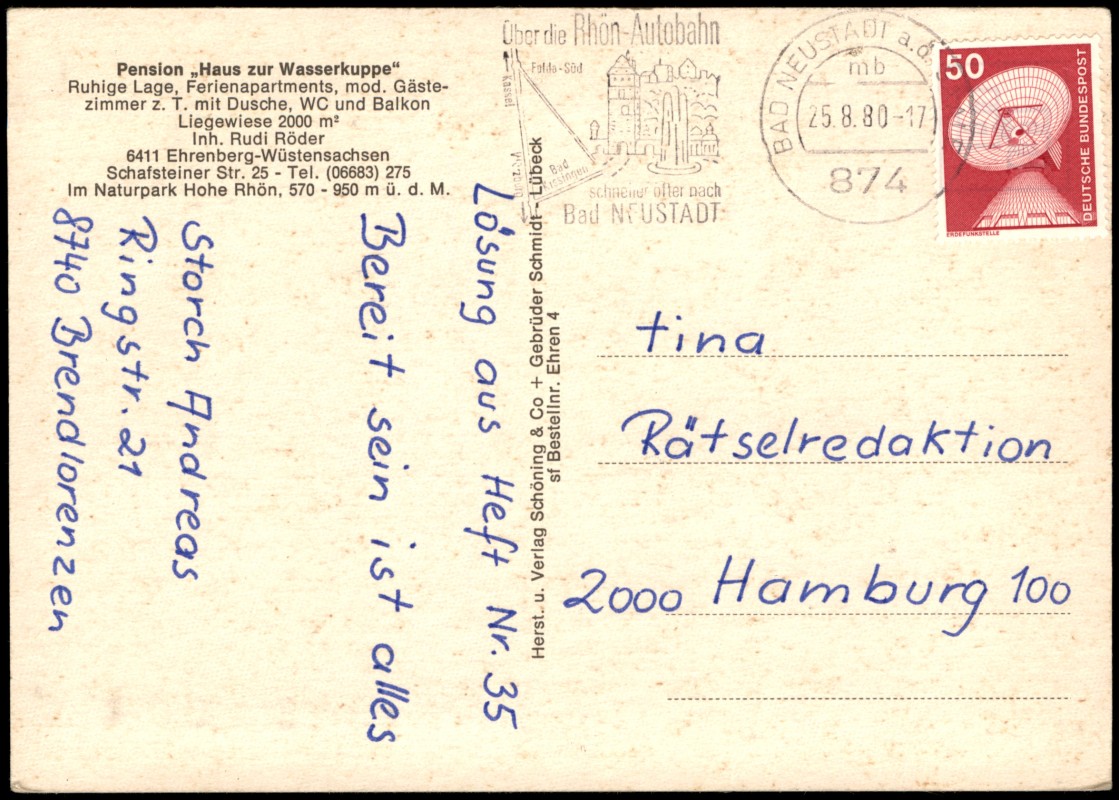 Pension „Haus zur Wasserkuppe“
Ruhige Lage, Ferienapartments, mod. Gäste-
zimmer z. T. mit Dusche, WC und Balkon
Liegewiese 2000 m²
Inh. Rudi Röder
6411 Ehrenberg-Wüstensachsen
Schafsteiner Str. 25 - Tel. (06683) 275
Im Naturpark Hohe Rhön, 570 - 950 m ü. d. M.
Lösung aus Heft Nr. 35
Bereit sein ist alles
Storch Andreas
Ringstr. 21
8740 Brendlorenzen
Herst. u. Verlag Schöning & Co + Gebrüder Schmidt - Lübeck
sf Bestellnr. Ehren 4
Über die Rhön-Autobahn
Kassel
Fulda-Süd
Würzburg
Bad
Kissingen
schneller öfter nach
Bad NEUSTADT
BAD NEUSTADT a.d.
mb
25.8.80-17
874
50
DEUTSCHE BUNDESPOST
ERDEFUNKSTELLE
tina
Rätselredaktion
2000 Hamburg 100